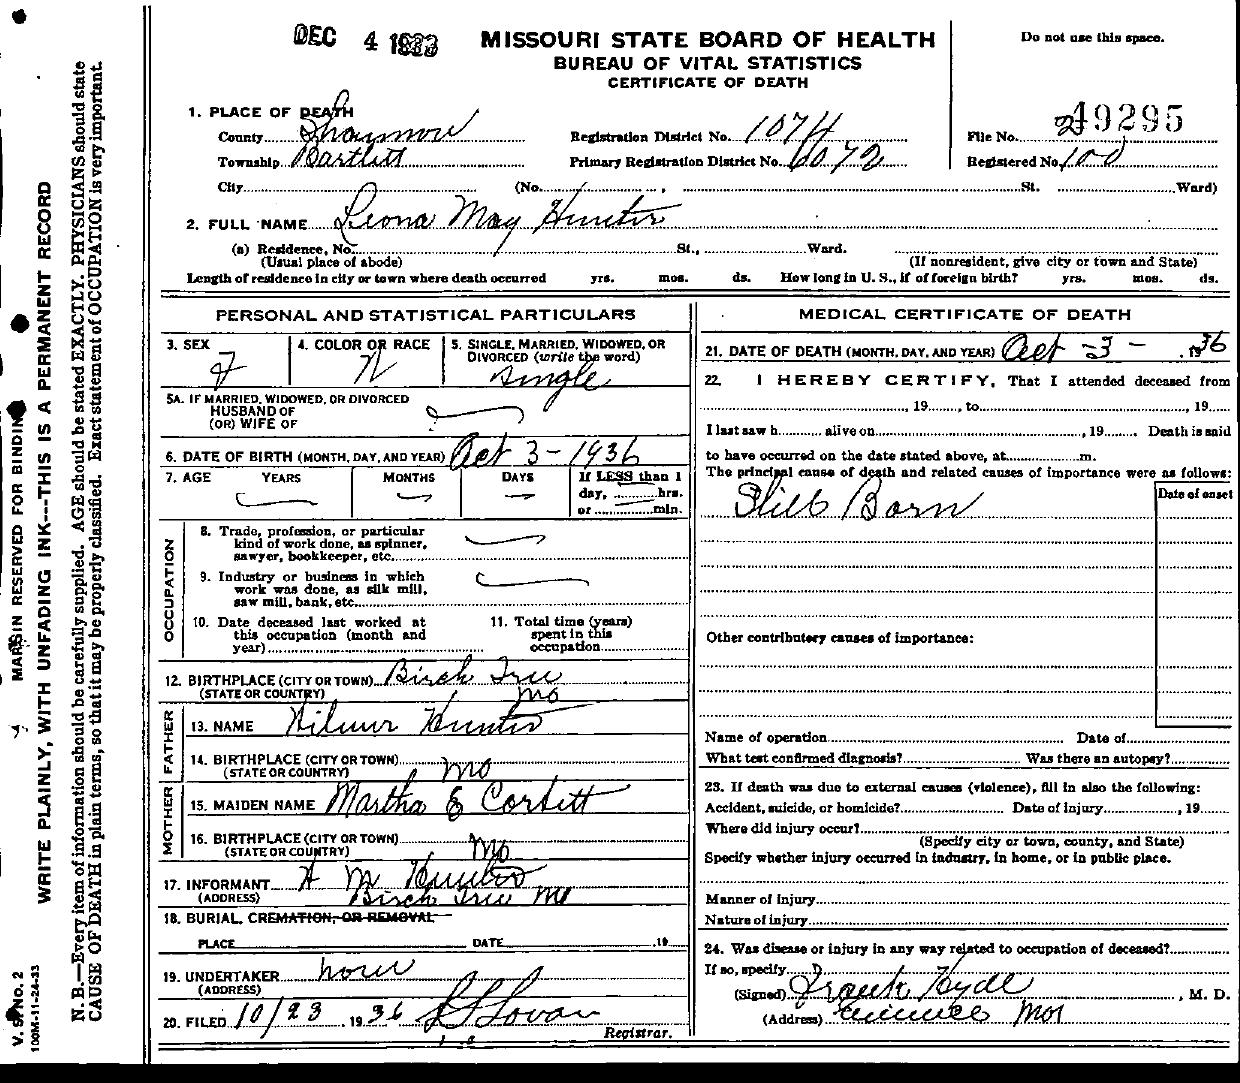 DEC 4
MISSOURI STATE BOARD OF HEALTH
BUREAU OF VITAL STATISTICS
CERTIFICATE OF DEATH
Do not use this space.
1. PLACE OF DEATH
County Shannon Registration District No. 1074 File No. 49295
Township Bartlett Primary Registration District No. 6072 Registered No. 100
City (No. , St. Ward)
2. FULL NAME Leona May Hunter
(a) Residence, No. St., Ward.
(Usual place of abode) (If nonresident, give city or town and State)
Length of residence in city or town where death occurred yrs. mos. ds. How long in U. S., if of foreign birth? yrs. mos. ds.
PERSONAL AND STATISTICAL PARTICULARS
3. SEX F
4. COLOR OR RACE W
5. SINGLE, MARRIED, WIDOWED, OR DIVORCED (write the word) single
5A. IF MARRIED, WIDOWED, OR DIVORCED
HUSBAND OF
(OR) WIFE OF
6. DATE OF BIRTH (MONTH, DAY, AND YEAR) Oct 3 - 1936
7. AGE YEARS MONTHS DAYS If LESS than 1
day, hrs.
or min.
OCCUPATION
8. Trade, profession, or particular
kind of work done, as spinner,
sawyer, bookkeeper, etc.
9. Industry or business in which
work was done, as silk mill,
saw mill, bank, etc.
10. Date deceased last worked at
this occupation (month and
year)
11. Total time (years)
spent in this
occupation
12. BIRTHPLACE (CITY OR TOWN) Birch Tree
(STATE OR COUNTRY) Mo
FATHER
13. NAME Wilmer Hunter
14. BIRTHPLACE (CITY OR TOWN)
(STATE OR COUNTRY) Mo
MOTHER
15. MAIDEN NAME Martha E Corbitt
16. BIRTHPLACE (CITY OR TOWN)
(STATE OR COUNTRY) Mo
17. INFORMANT W M Hunter
(ADDRESS) Birch Tree Mo
18. BURIAL, CREMATION, OR REMOVAL
PLACE DATE , 19
19. UNDERTAKER none
(ADDRESS)
20. FILED 10/23, 1936 Lovan
Registrar.
MEDICAL CERTIFICATE OF DEATH
21. DATE OF DEATH (MONTH, DAY, AND YEAR) Oct - 3 - , 1936
22. I HEREBY CERTIFY, That I attended deceased from
, 19 , to , 19
I last saw h alive on , 19 . Death is said
to have occurred on the date stated above, at m.
The principal cause of death and related causes of importance were as follows:
Date of onset
Still Born
Other contributory causes of importance:
Name of operation Date of
What test confirmed diagnosis? Was there an autopsy?
23. If death was due to external causes (violence), fill in also the following:
Accident, suicide, or homicide? Date of injury , 19
Where did injury occur?
(Specify city or town, county, and State)
Specify whether injury occurred in industry, in home, or in public place.
Manner of injury
Nature of injury
24. Was disease or injury in any way related to occupation of deceased?
If so, specify
(Signed) Frank Hyde , M. D.
(Address) Eminence Mo
MARGIN RESERVED FOR BINDING
WRITE PLAINLY, WITH UNFADING INK---THIS IS A PERMANENT RECORD
N. B.—Every item of information should be carefully supplied. AGE should be stated EXACTLY. PHYSICIANS should state
CAUSE OF DEATH in plain terms, so that it may be properly classified. Exact statement of OCCUPATION is very important.
V. S. No. 2
100M-11-24-33